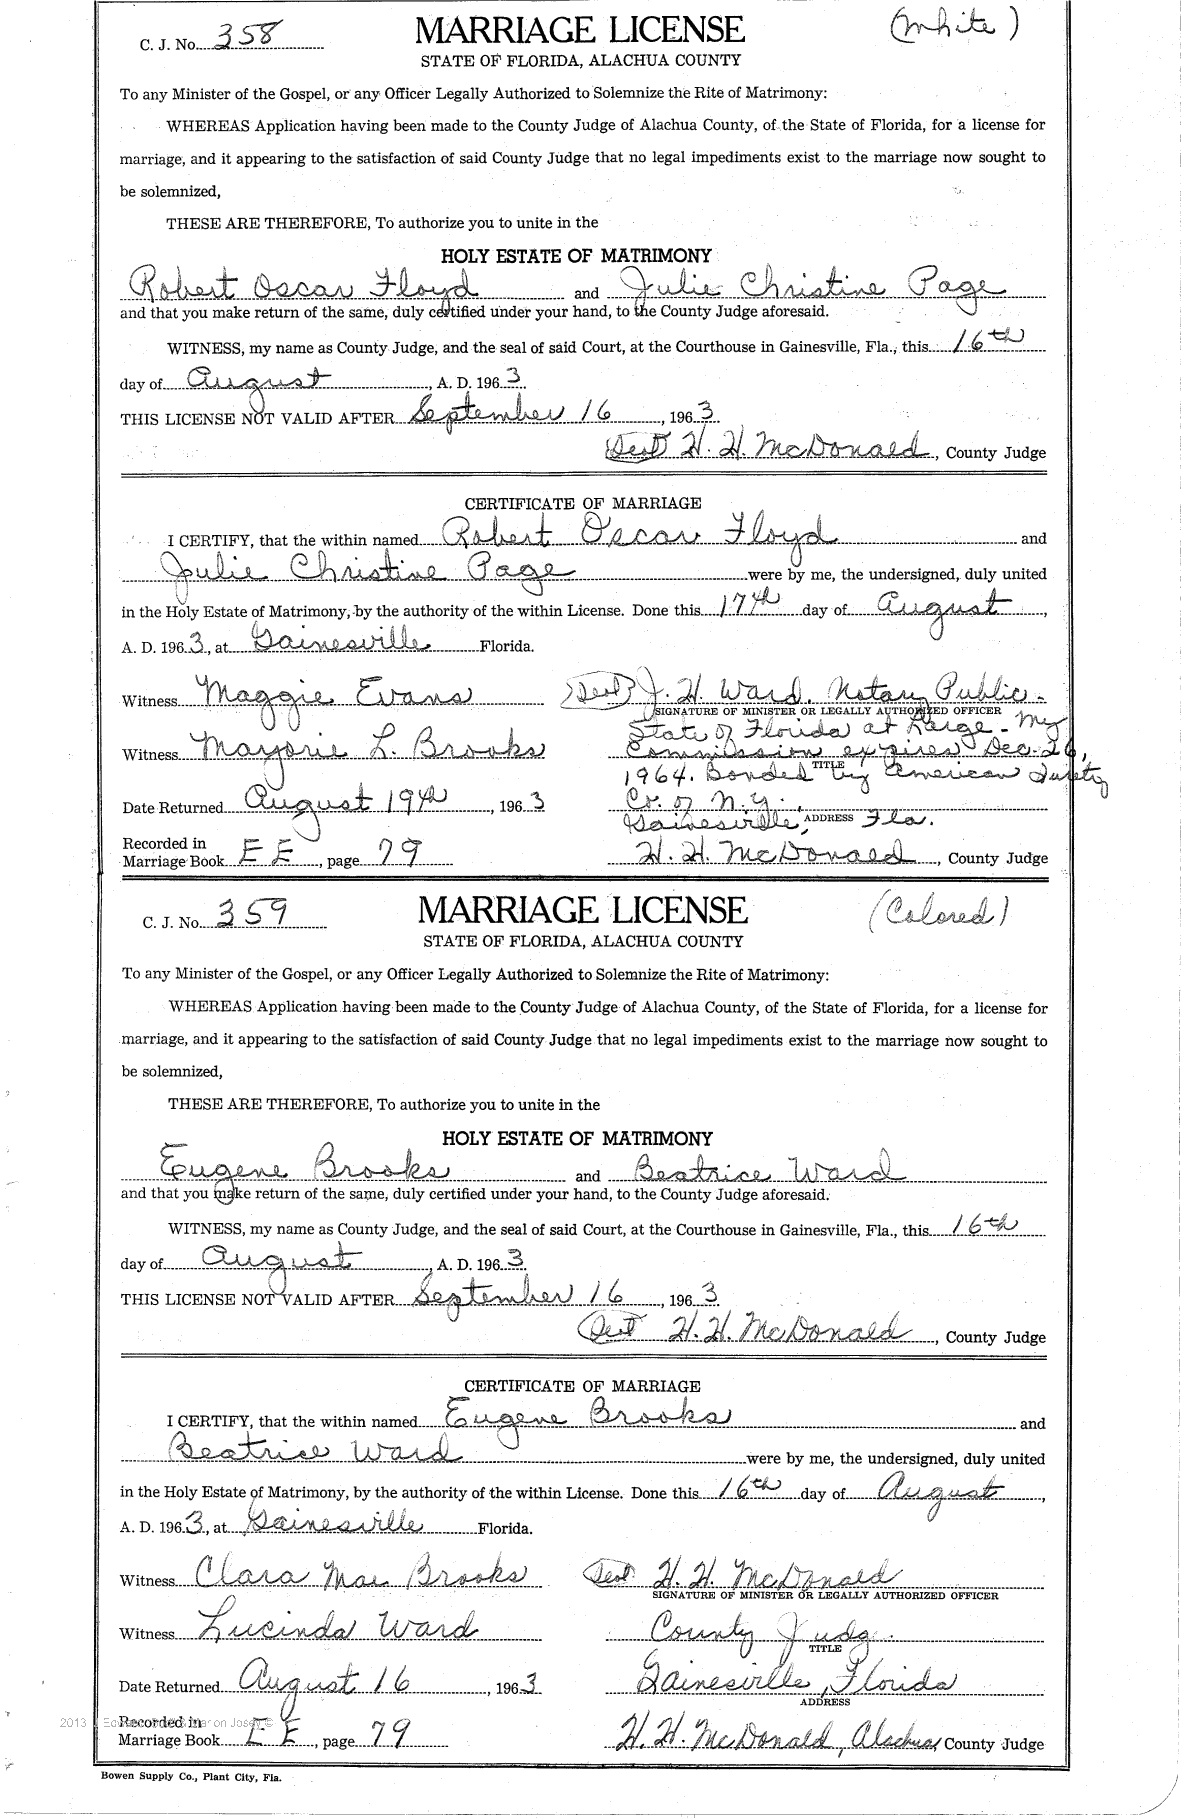 C. J. No. 358 MARRIAGE LICENSE (White)
STATE OF FLORIDA, ALACHUA COUNTY
To any Minister of the Gospel, or any Officer Legally Authorized to Solemnize the Rite of Matrimony:
WHEREAS Application having been made to the County Judge of Alachua County, of the State of Florida, for a license for
marriage, and it appearing to the satisfaction of said County Judge that no legal impediments exist to the marriage now sought to
be solemnized,
THESE ARE THEREFORE, To authorize you to unite in the
HOLY ESTATE OF MATRIMONY
Robert Oscar Floyd and Julie Christine Page
and that you make return of the same, duly certified under your hand, to the County Judge aforesaid.
WITNESS, my name as County Judge, and the seal of said Court, at the Courthouse in Gainesville, Fla., this 16th
day of August, A. D. 1963.
THIS LICENSE NOT VALID AFTER September 16, 1963
(Seal) H. H. McDonald, County Judge
CERTIFICATE OF MARRIAGE
I CERTIFY, that the within named Robert Oscar Floyd and
Julie Christine Page were by me, the undersigned, duly united
in the Holy Estate of Matrimony, by the authority of the within License. Done this 17th day of August,
A. D. 1963, at Gainesville Florida.
Witness Maggie Evans (Seal) J. H. Ward, Notary Public -
SIGNATURE OF MINISTER OR LEGALLY AUTHORIZED OFFICER
State of Florida at Large - My
Witness Marjorie L. Brooks Commission expires Dec. 26,
TITLE
1964. Bonded by American Surety
Date Returned August 19th, 1963 Co. of N.Y.,
Gainesville, ADDRESS Fla.
Recorded in
Marriage Book E E, page 79 H. H. McDonald, County Judge
C. J. No. 359 MARRIAGE LICENSE (Colored)
STATE OF FLORIDA, ALACHUA COUNTY
To any Minister of the Gospel, or any Officer Legally Authorized to Solemnize the Rite of Matrimony:
WHEREAS Application having been made to the County Judge of Alachua County, of the State of Florida, for a license for
marriage, and it appearing to the satisfaction of said County Judge that no legal impediments exist to the marriage now sought to
be solemnized,
THESE ARE THEREFORE, To authorize you to unite in the
HOLY ESTATE OF MATRIMONY
Eugene Brooks and Beatrice Ward
and that you make return of the same, duly certified under your hand, to the County Judge aforesaid.
WITNESS, my name as County Judge, and the seal of said Court, at the Courthouse in Gainesville, Fla., this 16th
day of August, A. D. 1963.
THIS LICENSE NOT VALID AFTER September 16, 1963
(Seal) H. H. McDonald, County Judge
CERTIFICATE OF MARRIAGE
I CERTIFY, that the within named Eugene Brooks and
Beatrice Ward were by me, the undersigned, duly united
in the Holy Estate of Matrimony, by the authority of the within License. Done this 16th day of August,
A. D. 1963, at Gainesville Florida.
Witness Clara Mae Brooks (Seal) H. H. McDonald
SIGNATURE OF MINISTER OR LEGALLY AUTHORIZED OFFICER
Witness Lucinda Ward County Judge
TITLE
Date Returned August 16, 1963 Gainesville, Florida
ADDRESS
2013 Josey ©
Recorded in
Marriage Book E E, page 79 H. H. McDonald, Alachua, County Judge
Bowen Supply Co., Plant City, Fla.